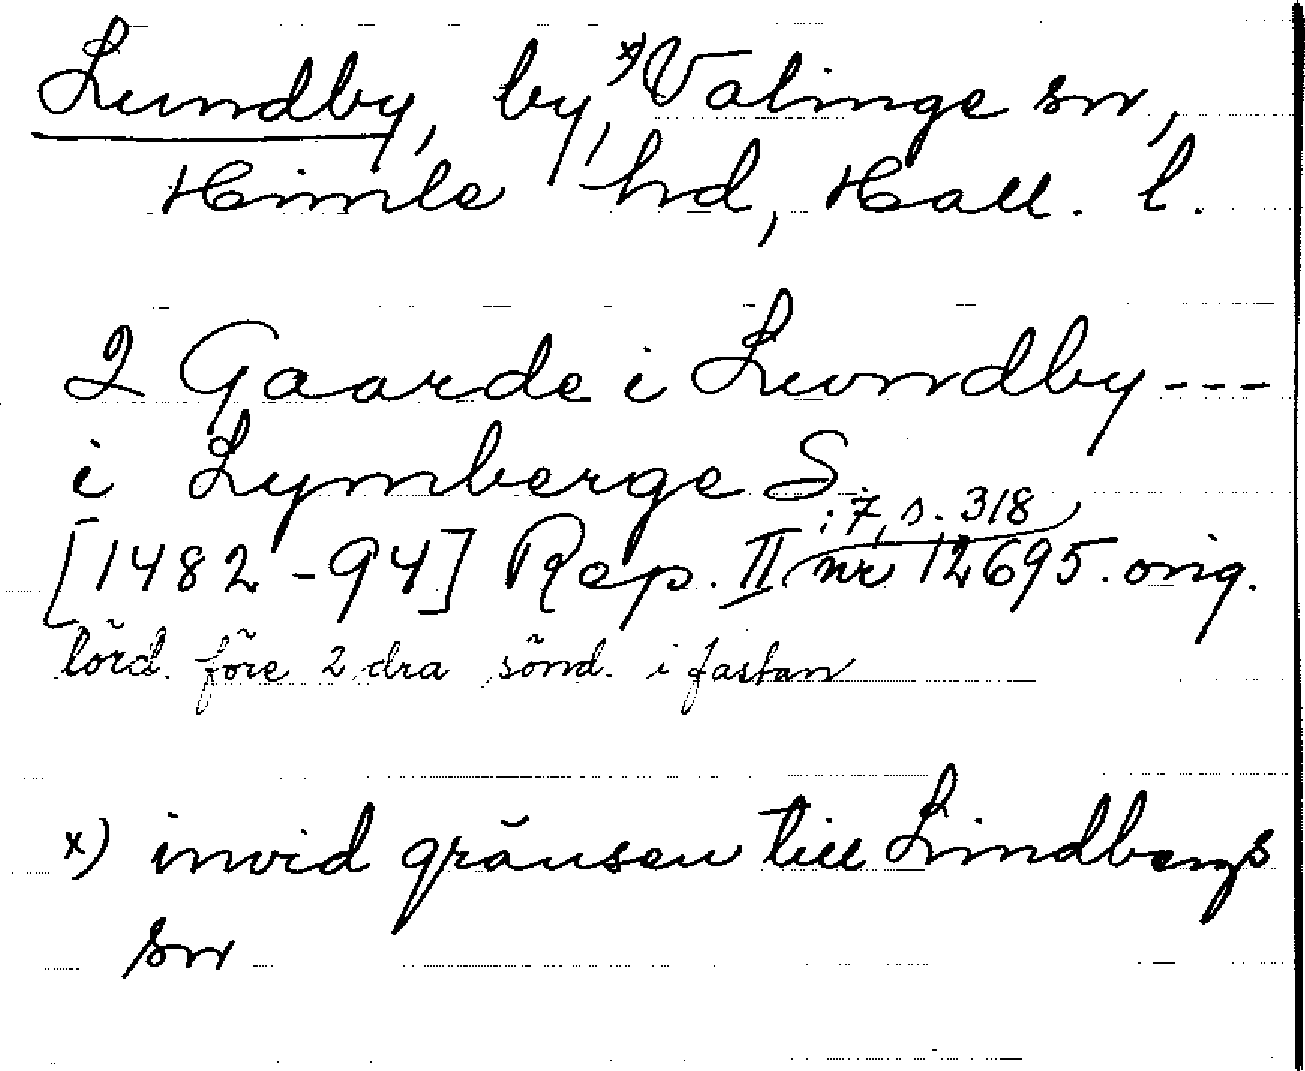 Lundby, by,ˣ⁾ Valinge sn,
Himle hd, Hall. l.
2 Gaarde i Lwndby ---
i Lymberge S.
[1482-94] Rep. II : 7, s. 318 nr 12695. orig.
lörd. före 2 dra sönd. i fastan
x) invid gränsen till Lindbergs
sn